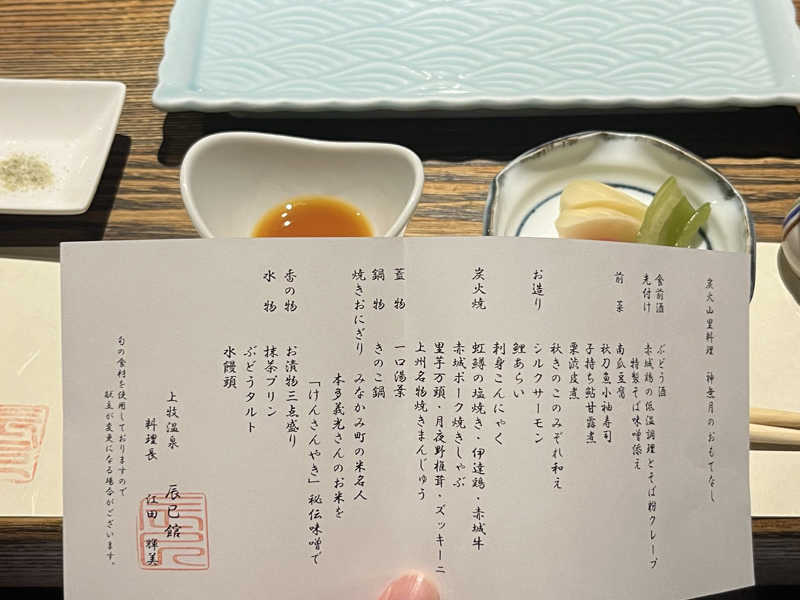 炭火山里料理 神無月のおもてなし
食前酒 ぶどう酒
先付け 赤城鶏の低温調理とそば粉クレープ
特製そば味噌添え
前菜 南瓜豆腐
秋刀魚小袖寿司
子持ち鮎甘露煮
栗渋皮煮
秋きのこのみぞれ和え
お造り シルクサーモン
鯉あらい
刺身こんにゃく
炭火焼 虹鱒の塩焼き・伊達鶏・赤城牛
赤城ポーク焼きしゃぶ
里芋万頭・月夜野椎茸・ズッキーニ
上州名物焼きまんじゅう
蓋物 一口湯葉
鍋物 きのこ鍋
焼きおにぎり みなかみ町の米名人
本多義光さんのお米を
「けんさんやき」秘伝味噌で
香の物 お漬物三点盛り
水物 抹茶プリン
ぶどうタルト
水饅頭
上牧温泉 辰巳館
料理長 江田 輝美
旬の食材を使用しておりますので
献立が変更になる場合がございます。